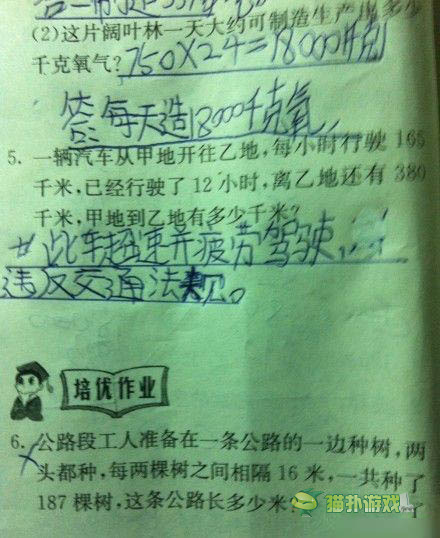 (2)这片阔叶林一天大约可制造生产出多少
千克氧气?750X24=18000千克
答每天造18000千克氧
5. 一辆汽车从甲地开往乙地,每小时行驶165
千米,已经行驶了12小时,离乙地还有380
千米,甲地到乙地有多少千米?
此车超速并疲劳驾驶
违反交通法规。
培优作业
6. 公路段工人准备在一条公路的一边种树,两
头都种,每两棵树之间相隔16米,一共种了
187棵树,这条公路长多少米?
猫扑游戏